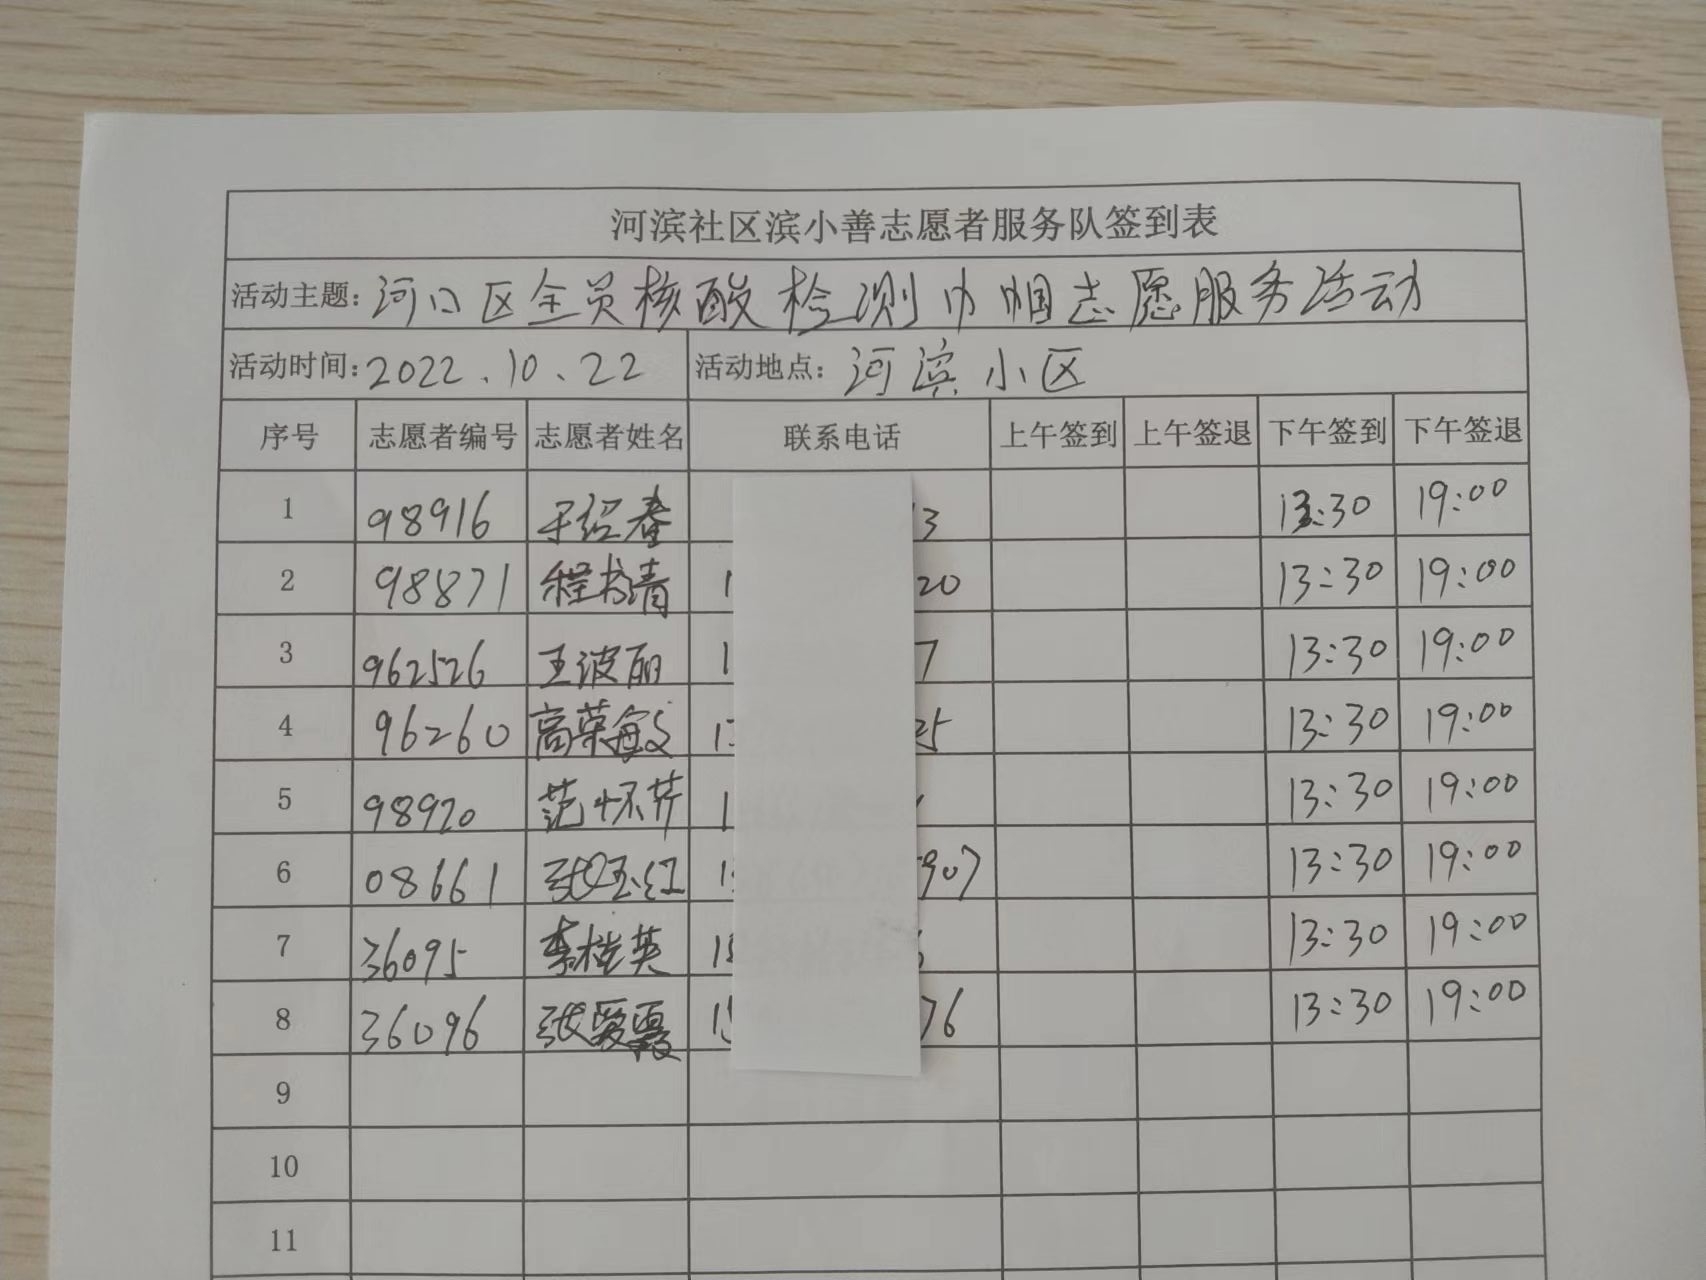 河滨社区滨小善志愿者服务队签到表
活动主题: 河口区全员核酸检测巾帼志愿服务活动
活动时间: 2022.10.22 活动地点: 河滨小区
序号 志愿者编号 志愿者姓名 联系电话 上午签到 上午签退 下午签到 下午签退
1 98916 于绍春 3 13:30 19:00
2 98871 程书清 1 20 13:30 19:00
3 962526 王波丽 1 7 13:30 19:00
4 96260 高荣敏 1 25 13:30 19:00
5 98920 范怀芹 1 13:30 19:00
6 08661 张玉红 1 907 13:30 19:00
7 36095 李桂英 18 13:30 19:00
8 36096 张爱霞 15 76 13:30 19:00
9
10
11